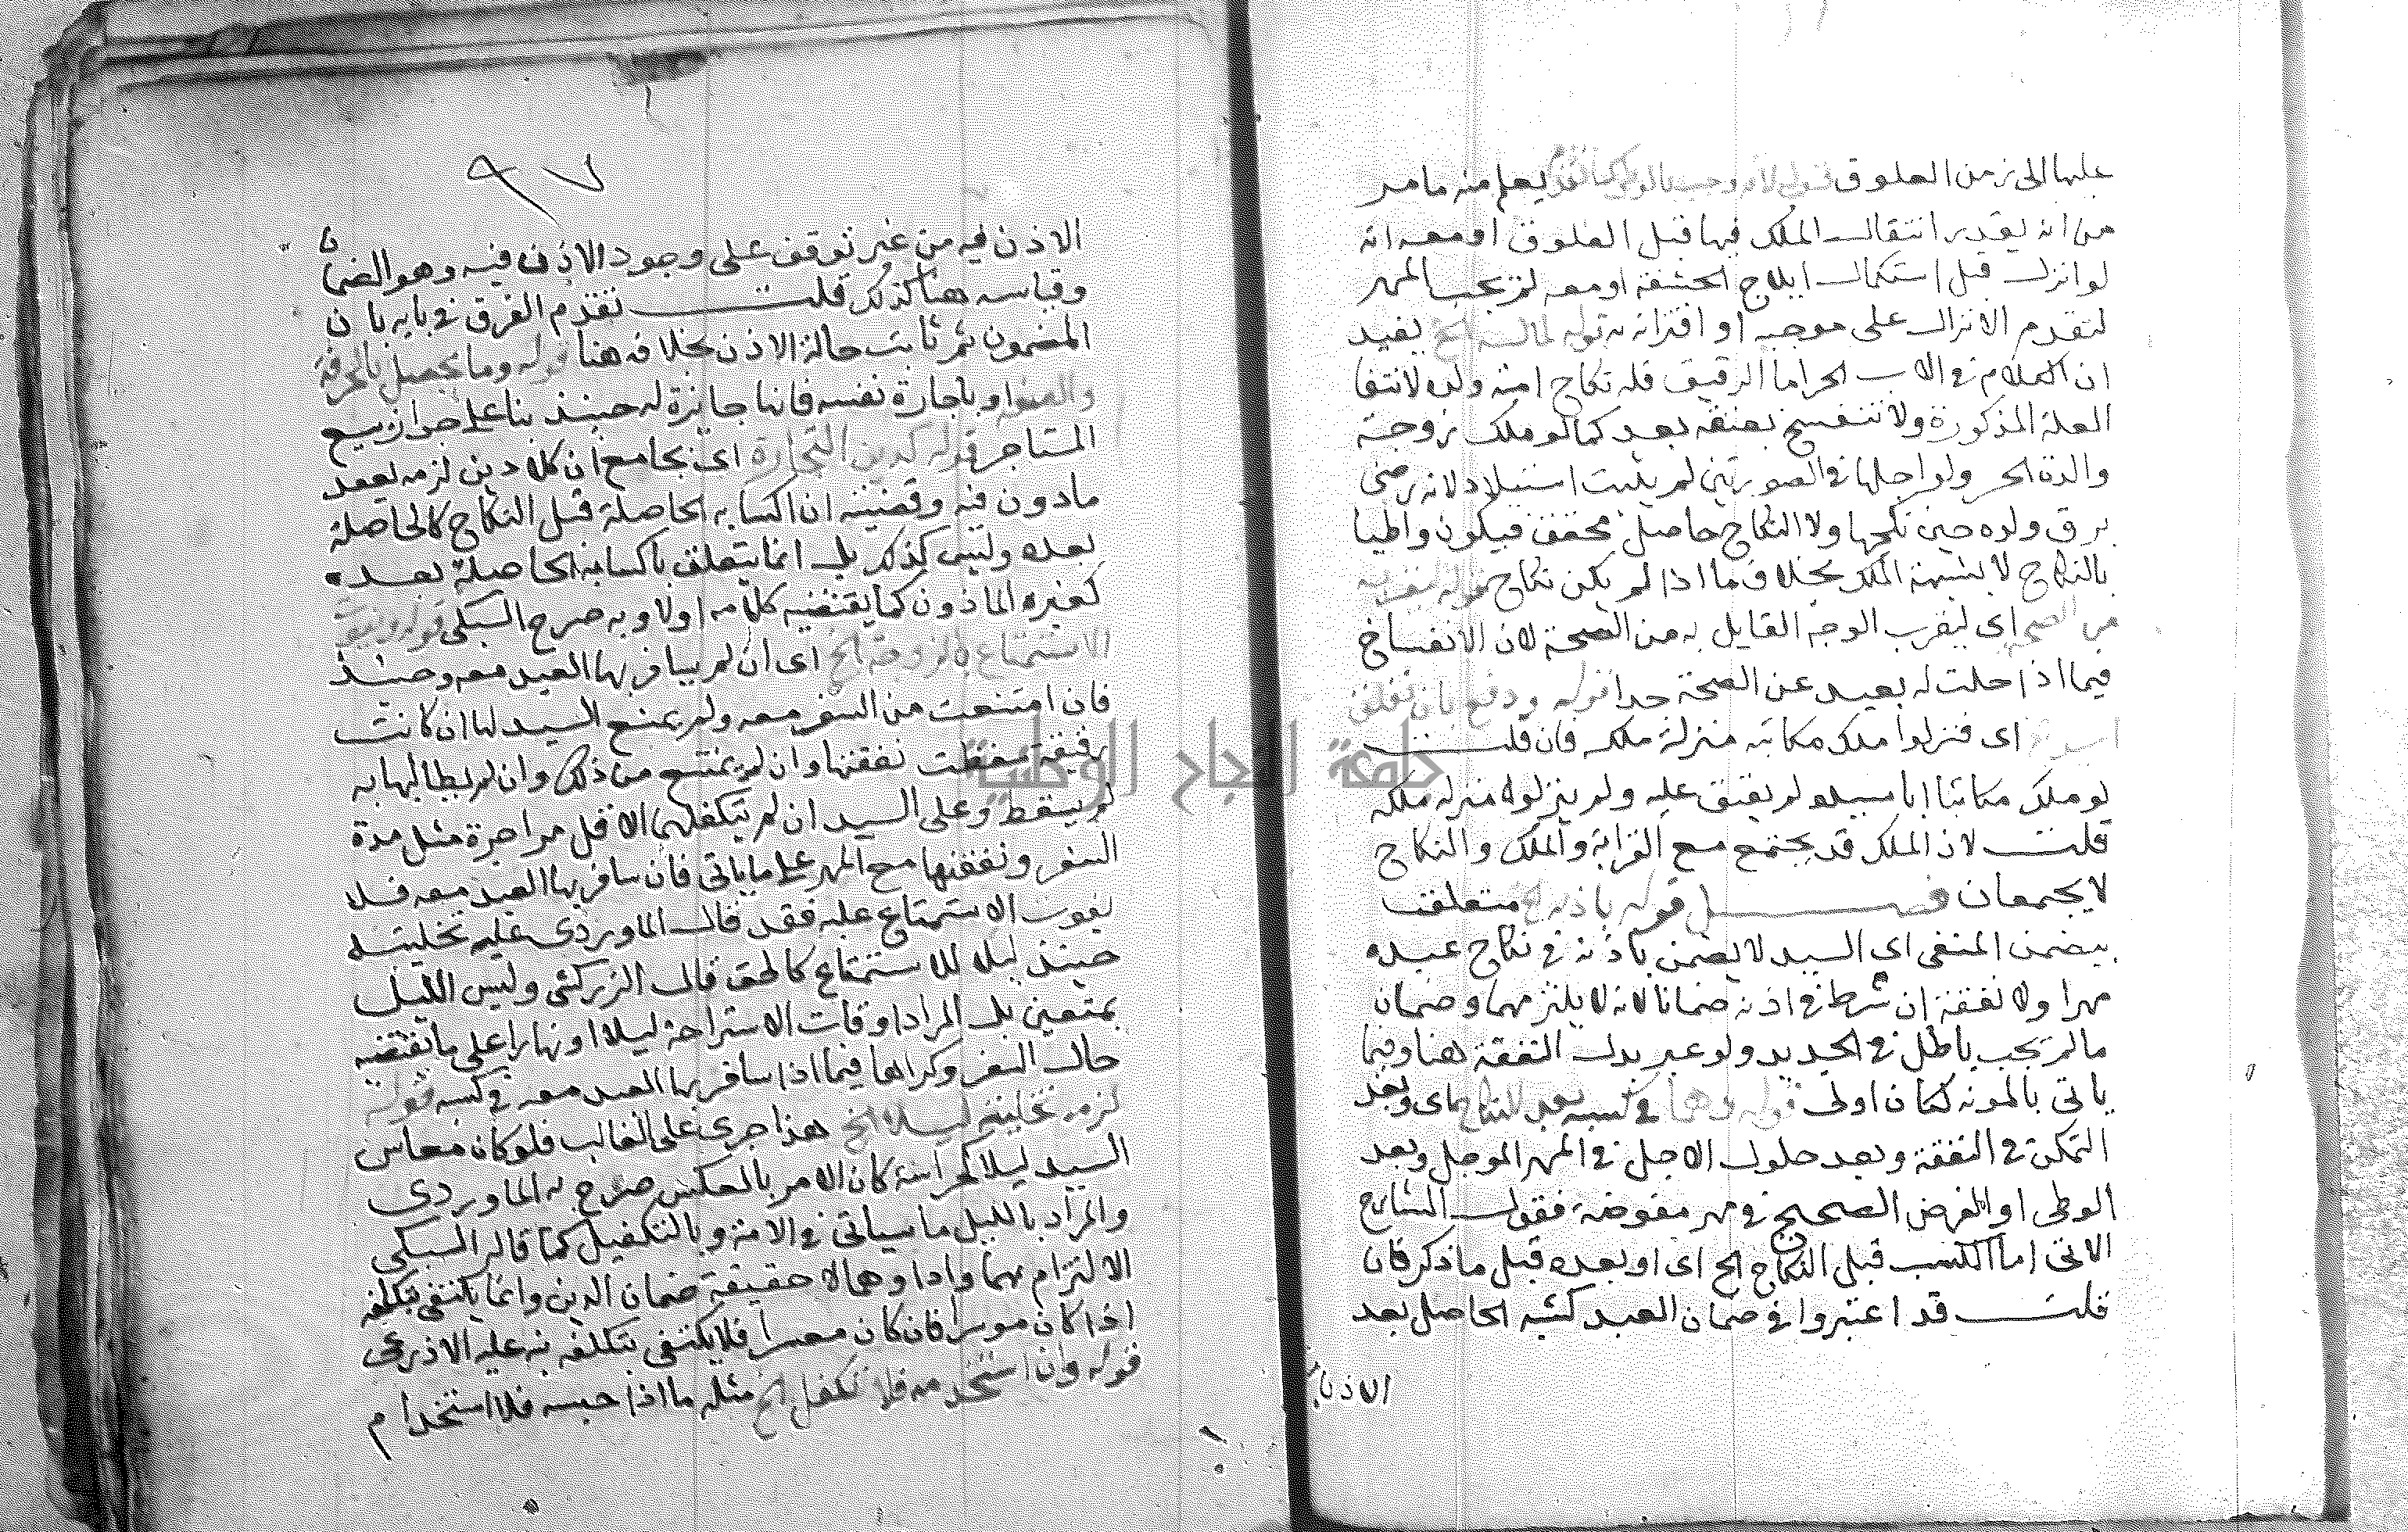 عليها الى زمن العلوق قوله لانه وجب بالوطى يعلم منه ما مر
من انه يقدر انتقال الملك فيها قبل العلوق او معه انه
لو انزل قبل استكمال ايلاج الحشفة او معه لم يجب المهر
لتقدم الانزال على موجبه او اقترانه به قوله لمالك الخ يفيد
ان الكلام في الاب الحر اما الرقيق فله نكاح امة ولده لانتفا
العلة المذكورة ولا تنفسخ بعتقه بعد كما لو ملك زوجة
والده الحر ولو احبلها في الصورتين لم يثبت استيلاد لانه رضى
برق ولده حين نكحها ولا النكاح حاصل محقق فيكون واطيا
بالنكاح لا بشبهة الملك بخلاف ما اذا لم يكن نكاح قوله
من الصحة اى ليقرب الوجه القايل به من الصحة لان الانفساخ
فيما اذا حلت له بعيد عن الصحة جدا قوله ودفع بان تعلق
اى فنزلوا ملك مكاتبه منزلة ملكه فان قلت
لو ملك مكاتبا ابا سيده لم يعتق عليه ولم ينزلوه منزلة ملكه
قلت لان الملك قد يجتمع مع القرابة والملك والنكاح
لا يجتمعان فصل قوله باذنه الخ متعلقت
بيضمن المنفى اى السيد لا يضمن باذنه في نكاح عبده
مهرا ولا نفقة ان شرط في اذنه ضمانا لانه لا يلتزمهما وضمان
مالم يجب باطل في الجديد ولو عبر بدل النفقة هنا وفيما
ياتى بالمونه لكان اولى قوله وهما في كسبه بعد النكاح اى وبعد
التمكن في النفقة وبعد حلول الاجل في المهر الموجل وبعد
الوطى او الفرض الصحيح في مهر مفوضة فقول الشارح
الاتى اما الكسب قبل النكاح الخ اى او بعده قبل ما ذكر فان
قلت قد اعتبروا في ضمان العبد كسبه الحاصل بعد
الاذن
٩٧
الاذن فيه من غير توقف على وجود الاذن فيه وهو الضمان
وقياسه هنا كذلك قلت تقدم الفرق في بابه بان
المضمون ثم ثابت حالة الاذن بخلافه هنا قوله وما يحصل بالحرفة
او باجارة نفسه فانها جايزة له حينيذ بنا على جواز بيع
المستاجر قوله كدين التجارة اى بجامع ان كلا دين لزمه بعقد
ماذون فيه وقضيته ان اكسابه الحاصلة قبل النكاح كالحاصلة
بعده وليس كذلك بل انما يتعلق باكسابه الحاصلة بعده
كغيره الماذون كما يقتضيه كلامه اولا وبه صرح السبكى قوله
الاستمتاع بالزوجة الخ اى ان لم يسافر بها العبد معه وحينيذ
فان امتنعت من السفر معه ولم يمنع السيد لها ان كانت
رقيقة سقطت نفقتها وان لم يمتنع من ذلك وان لم يطالبها به
لم يسقط وعلى السيد ان لم يتكفلهما الاقل من اجرة مثل مدة
السفر ونفقتها مع المهر على ما ياتى فان سافر بها العبد معه فلا
يفوت الاستمتاع عليه فقد قال الماوردى عليه تخليته
حينيذ ليلا للاستمتاع كالحق قال الزركشى وليس الليل
بمتعين بل المراد اوقات الاستراحة ليلا او نهارا على ما تقتضيه
حال السفر وكراها فيما اذا سافر بها العبد معه في كسبه قوله
لزمه تخليته ليلا الخ هذا جرى على الغالب فلو كان معاش
السيد ليلا كحراسة كان الامر بالعكس صرح به الماوردى
والمراد بالليل ما سياتى في الامة وبالتكفيل كما قاله السبكى
الالتزام بهما وادا وهما لا حقيقة ضمان الدين وانما يكتفى بتكلفه
اذا كان موسرا فان كان معسرا فلا يكتفى بتكلفه نبه عليه الاذرعى
قوله وان استخدمه فلا تكفل الخ مثله ما اذا حبسه فلا استخدام